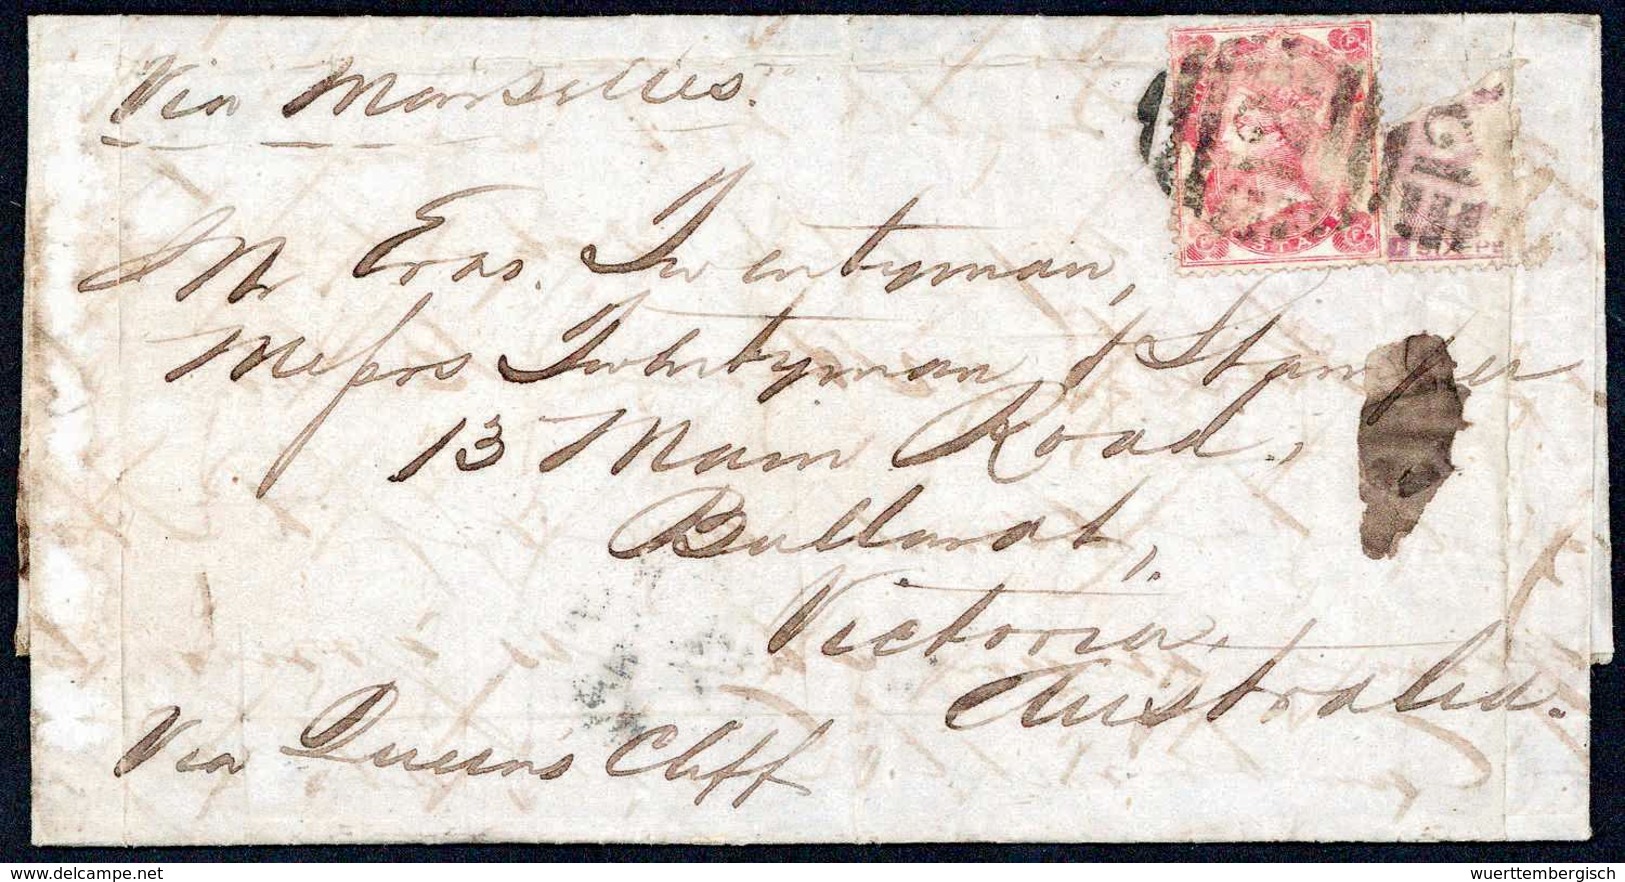 Via Marseilles.
Mr Eras. Twentyman,
Messrs Twentyman & Stamper
13 Main Road,
Ballarat,
Victoria,
Australia.
Via Queens Cliff
delcampe.net
wuerttembergisch